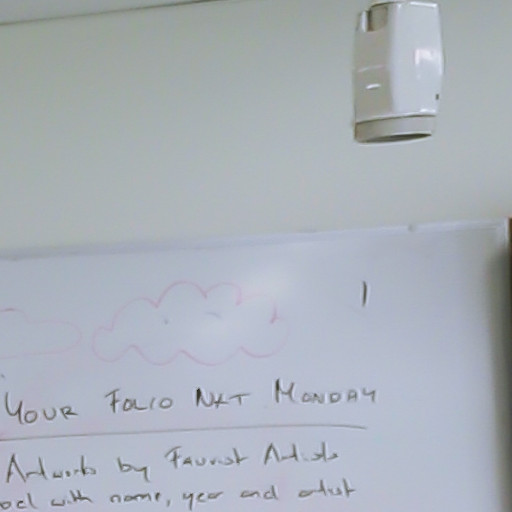 YOUR FOLIO NXT MONDAY
Artworks by FAURIST Artists
oel with name, year and artist